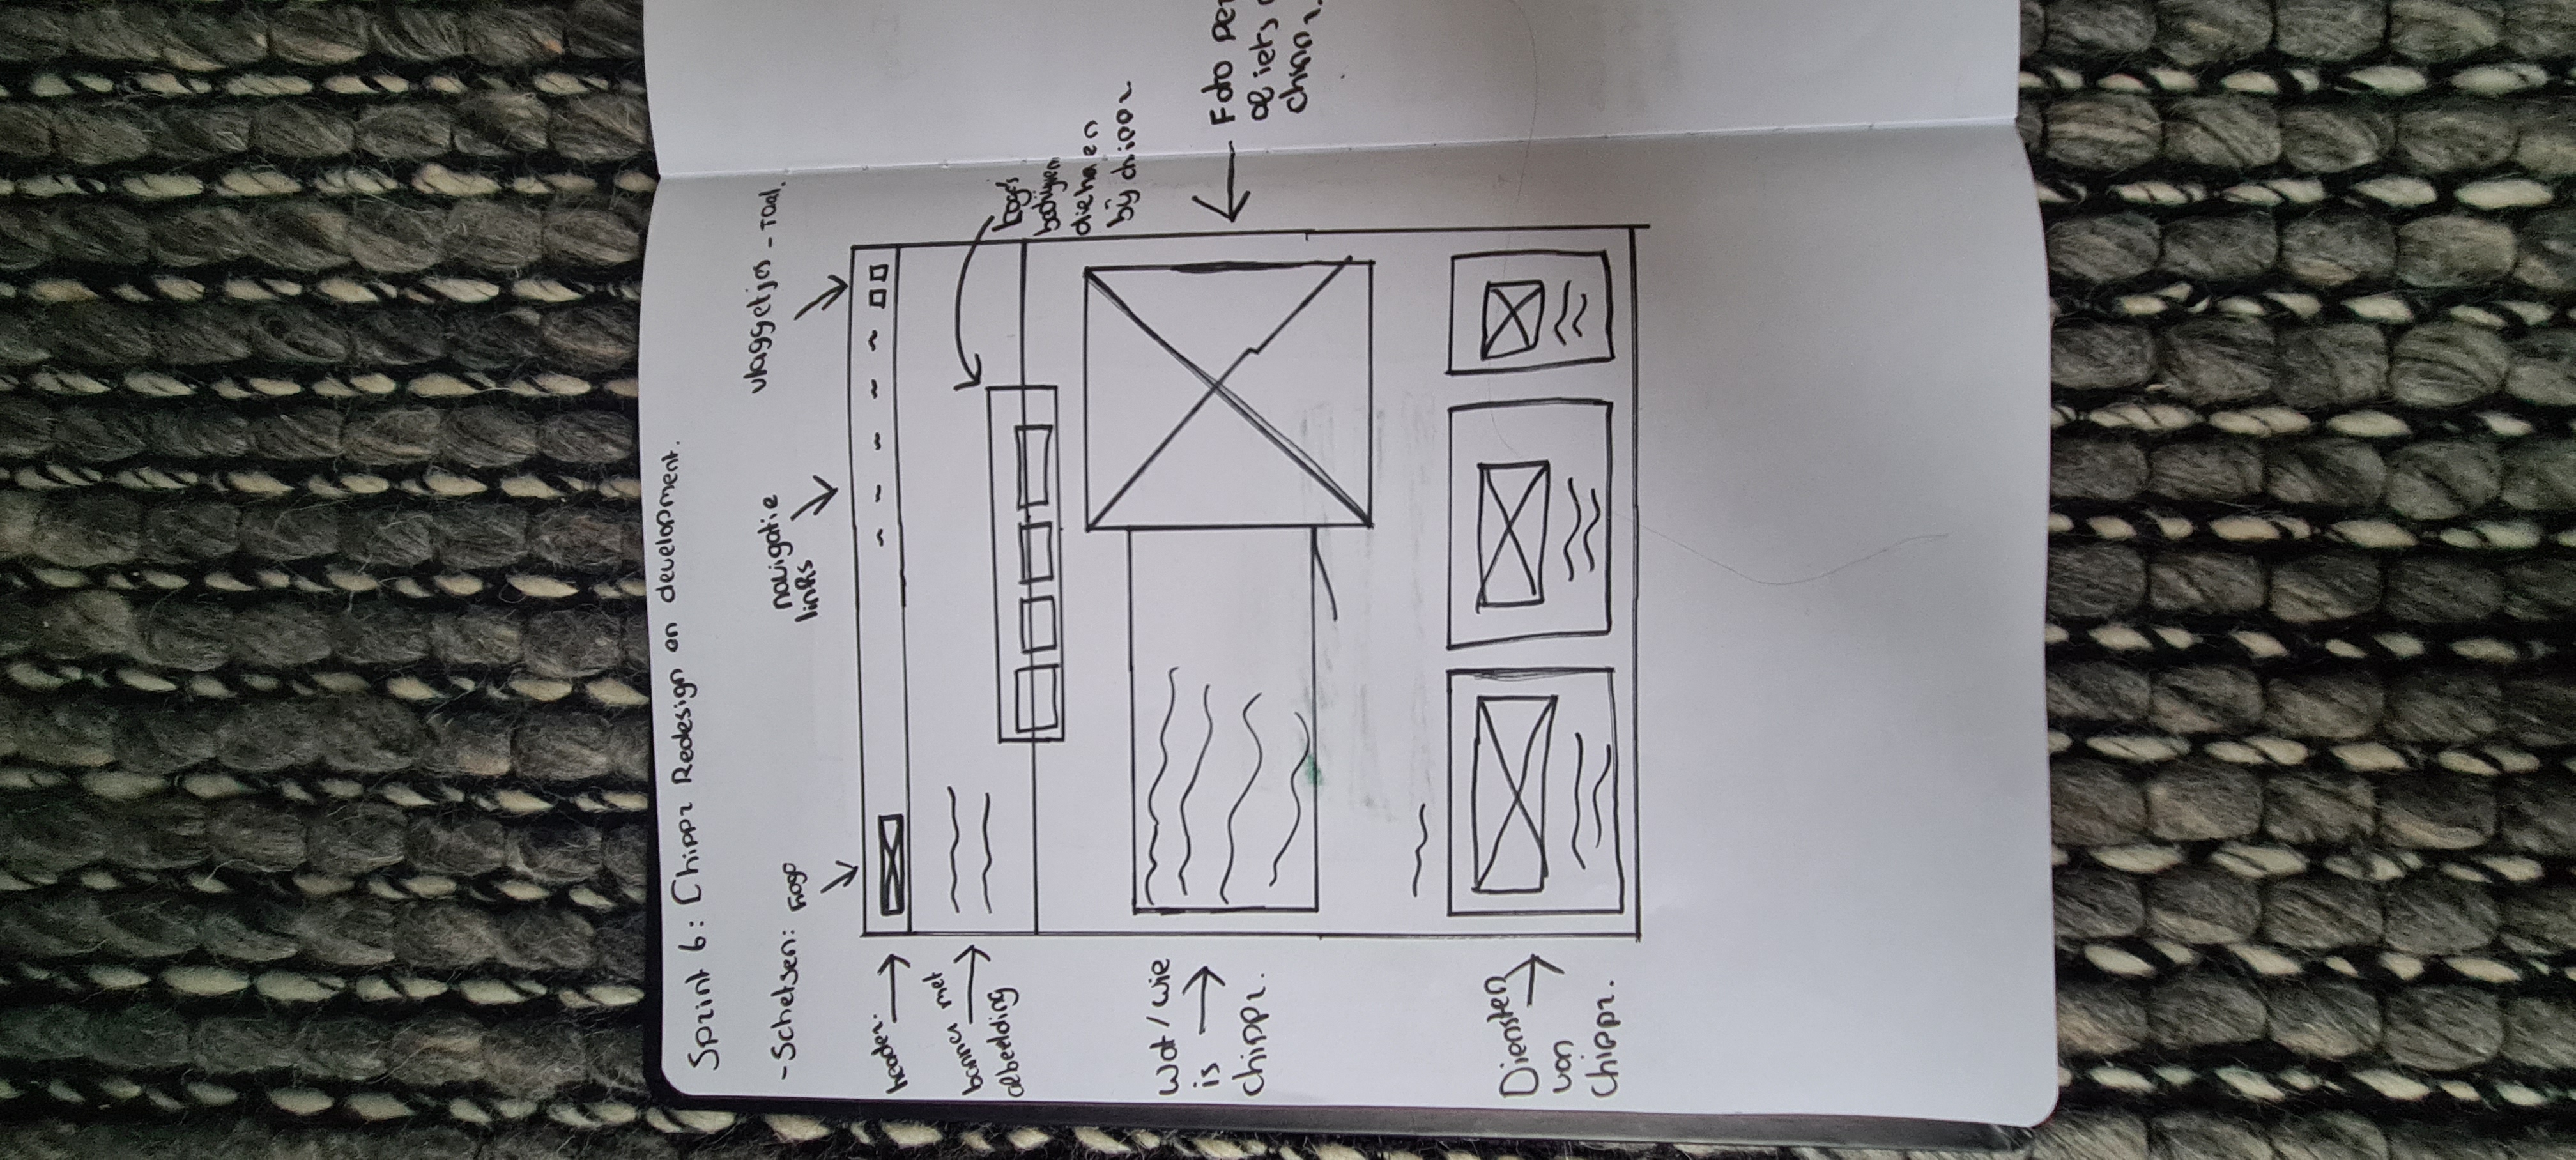 Sprint 6: Chippr Redesign en development.
-Schetsen:
Logo
navigatie
links
vlaggetjes - Taal.
header.
banner met
afbeelding
Logo's
bedrijven
die
bij chippr
Wat / wie
is
chippr.
Foto per
of iets
chippr
Diensten
van
Chippr.